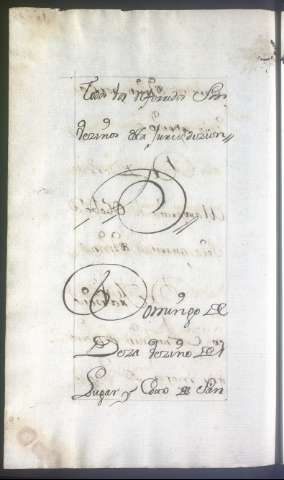 Todos los referidos son
vezinos de la Jurisdizion
Domingo de
Deza Vezino del
Lugar y Coto de San